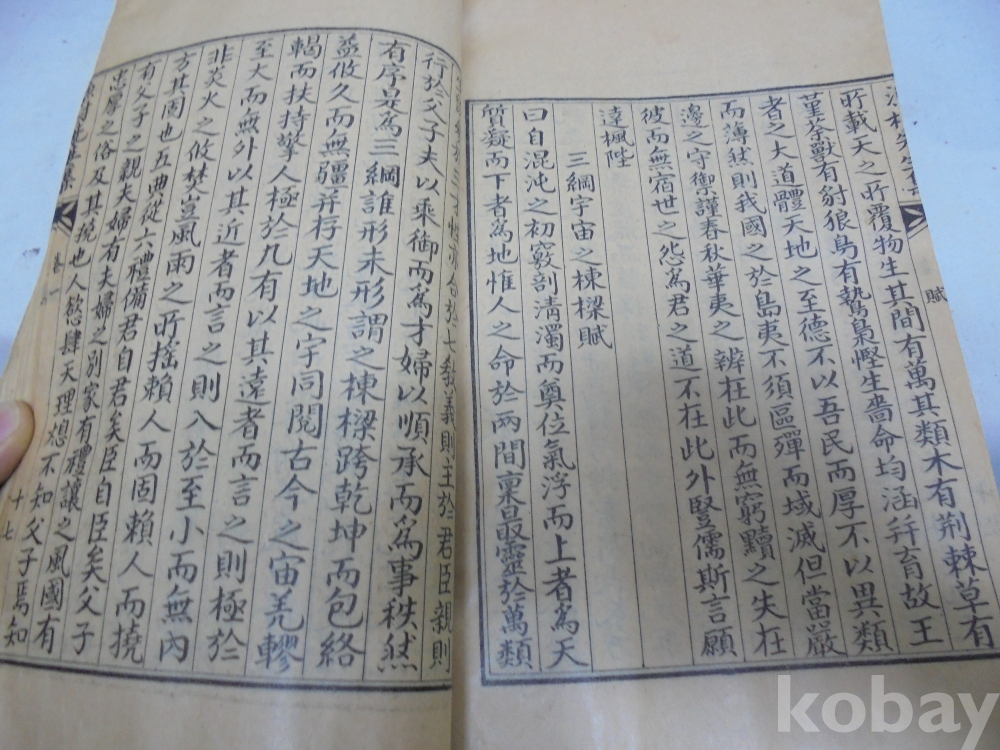 賦
所載天之所覆物生其間有萬其類木有荆棘草有
堇荼獸有豺狼鳥有鷙梟慳生嗇命均涵幷育故王
者之大道體天地之至德不以吾民而厚不以異類
而薄然則我國之於島夷不須區殫而域滅但當嚴
邊之守禦謹春秋華夷之辨在此而無窮黷之失在
彼而無宿世之怨爲君之道不在此外竪儒斯言願
達楓陛
三綱宇宙之棟樑賦
曰自混沌之初竅剖淸濁而奠位氣浮而上者爲天
質凝而下者爲地惟人之命於兩間禀最靈於萬類
敎義則主於君臣親則
行於父子夫以乘御而爲才婦以順承而爲事秩然
有序是爲三綱誰形未形謂之棟樑跨乾坤而包絡
益攸久而無疆幷存天地之宇同閱古今之宙羌轇
轕而扶持擎人極於九有以其遠者而言之則極於
至大而無外以其近者而言之則入於至小而無內
非炎火之攸焚豈風雨之所搖賴人而固賴人而撓
方其固也五典從六禮備君自君矣臣自臣矣父子
有父子之親夫婦有夫婦之別家有禮讓之風國有
忠厚之俗及其撓也人慾肆天理熄不知父子焉知
卷一
十七
kobay